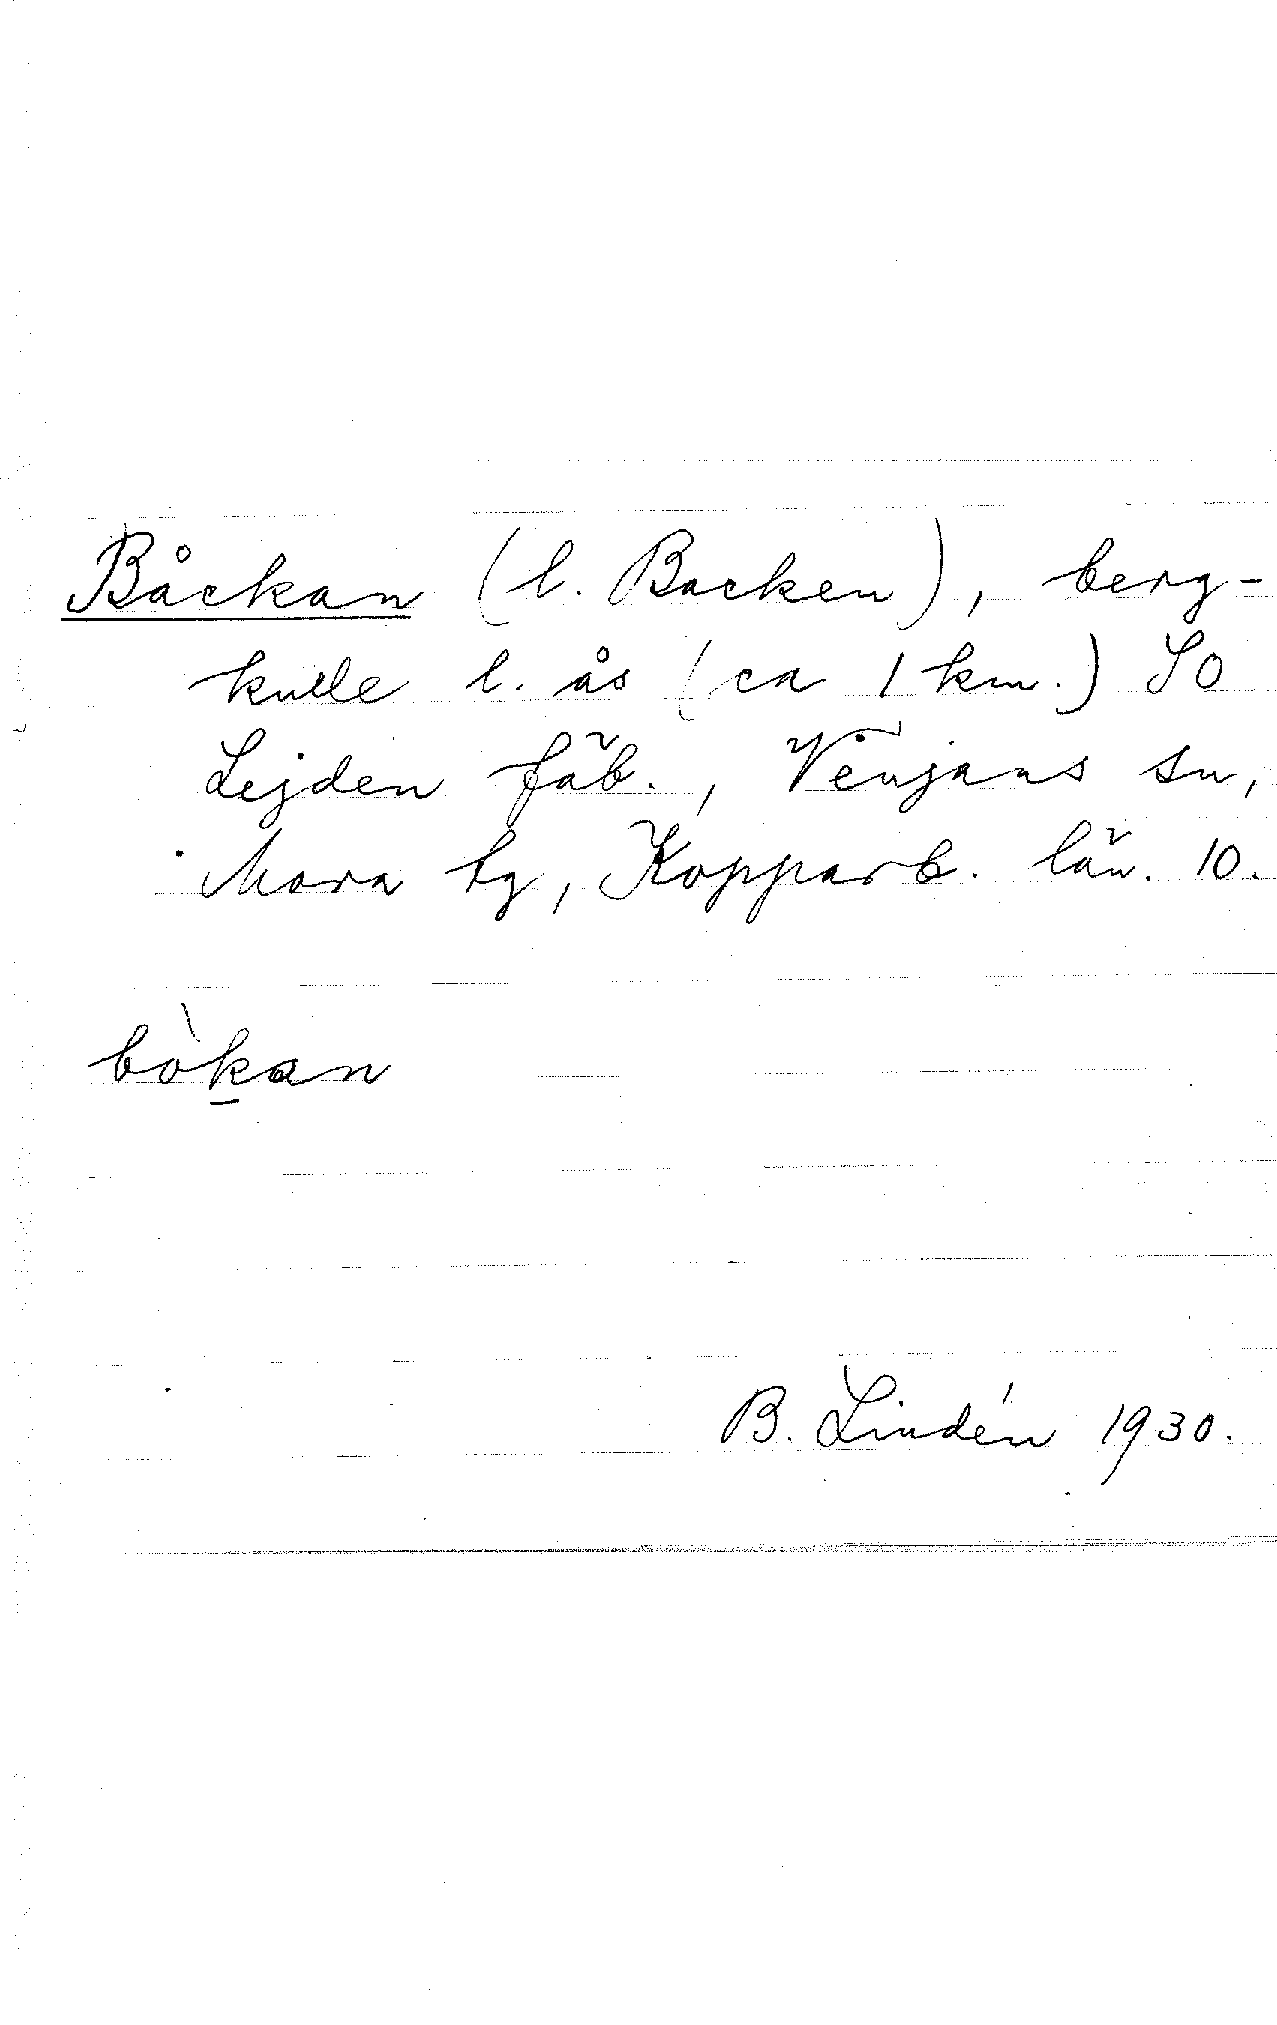 Båckan (l. Backen), berg-
kulle l. ås (ca 1 km.) SO
Lejden fäb., Venjans sn,
Mora tg, Kopparb. län. 10.
bòkan
B. Lindén 1930.